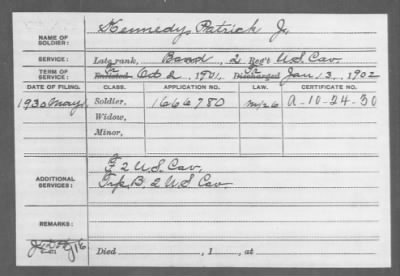 NAME OF SOLDIER: Kennedy, Patrick J.
SERVICE: Late rank, Band, 2 Reg't U.S. Cav.
TERM OF SERVICE: Enlisted Oct 2, 1901, Discharged Jan 13, 1902
DATE OF FILING. CLASS. APPLICATION NO. LAW. CERTIFICATE NO.
1930 May Soldier, 1666780 A-10-24-30
Widow,
Minor,
ADDITIONAL SERVICES: F 2 U.S. Cav.
Trp B, 2 U.S. Cav
REMARKS:
Died , 1 , at